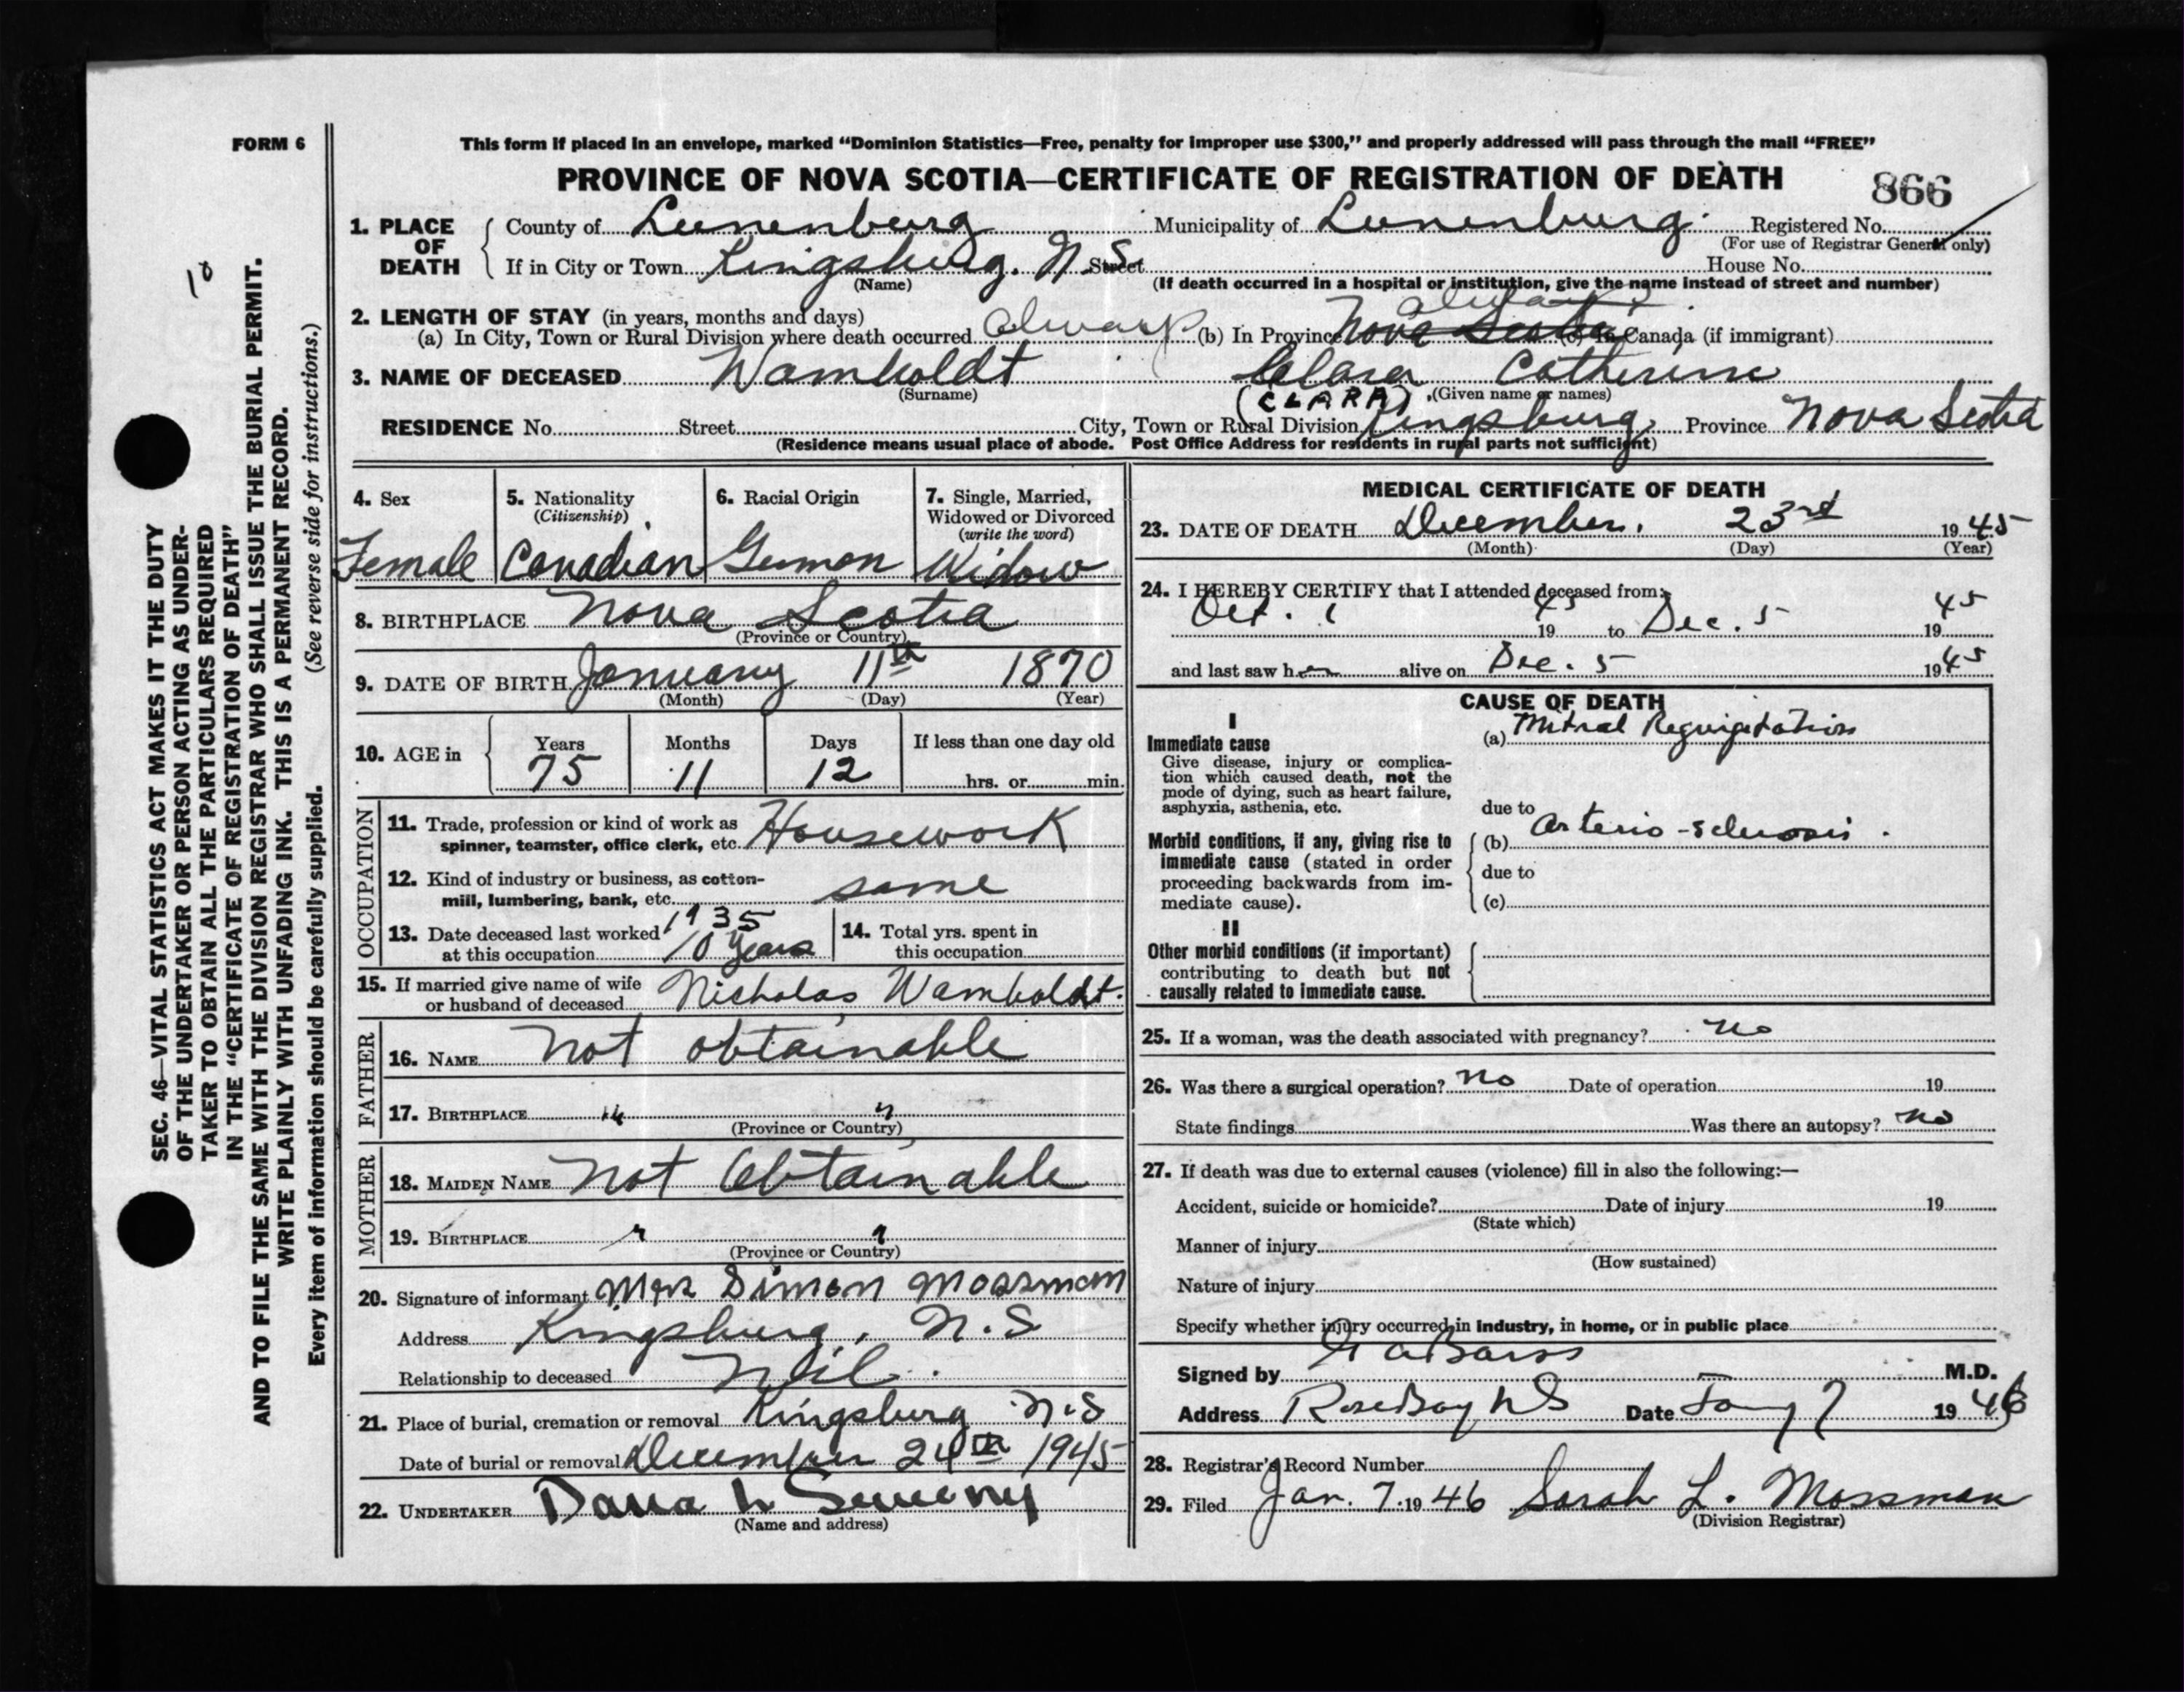 FORM 6
This form if placed in an envelope, marked "Dominion Statistics—Free, penalty for improper use $300," and properly addressed will pass through the mail "FREE"
PROVINCE OF NOVA SCOTIA—CERTIFICATE OF REGISTRATION OF DEATH
866
1. PLACE OF DEATH
County of Lunenburg Municipality of Lunenburg. Registered No.
(For use of Registrar General only)
If in City or Town Kingsburg. N.S. Street House No.
(Name) (If death occurred in a hospital or institution, give the name instead of street and number)
2. LENGTH OF STAY (in years, months and days)
always
(a) In City, Town or Rural Division where death occurred always (b) In Province Nova Scotia (c) In Canada (if immigrant)
3. NAME OF DECEASED Wamboldt Clara Catherine
(Surname) (CLARA) (Given name or names)
RESIDENCE No. Street City, Town or Rural Division Kingsburg, Province Nova Scotia
(Residence means usual place of abode. Post Office Address for residents in rural parts not sufficient)
4. Sex
Female
5. Nationality
(Citizenship)
Canadian
6. Racial Origin
German
7. Single, Married,
Widowed or Divorced
(write the word)
Widow
8. BIRTHPLACE Nova Scotia
(Province or Country)
9. DATE OF BIRTH January 11th 1870
(Month) (Day) (Year)
10. AGE in
Years Months Days If less than one day old
75 11 12 hrs. or min.
OCCUPATION
11. Trade, profession or kind of work as
spinner, teamster, office clerk, etc. Housework
12. Kind of industry or business, as cotton-
mill, lumbering, bank, etc. same
13. Date deceased last worked 1935
at this occupation 10 years
14. Total yrs. spent in
this occupation
15. If married give name of wife
or husband of deceased Nicholas Wamboldt.
FATHER
16. NAME Not obtainable
17. BIRTHPLACE " "
(Province or Country)
MOTHER
18. MAIDEN NAME Not Obtainable
19. BIRTHPLACE " "
(Province or Country)
20. Signature of informant Mrs Simon Mossman
Address Kingsburg, N.S
Relationship to deceased Nil.
21. Place of burial, cremation or removal Kingsburg N.S
Date of burial or removal December 24th 1945
22. UNDERTAKER Dana Sweeny
(Name and address)
MEDICAL CERTIFICATE OF DEATH
23. DATE OF DEATH December. 23rd 1945
(Month) (Day) (Year)
24. I HEREBY CERTIFY that I attended deceased from:
Oct. 1 1945 to Dec. 5 1945
and last saw her alive on Dec. 5 1945
CAUSE OF DEATH
I
Immediate cause
Give disease, injury or complica-
tion which caused death, not the
mode of dying, such as heart failure,
asphyxia, asthenia, etc.
(a) Mitral Regurgitation
due to
Morbid conditions, if any, giving rise to
immediate cause (stated in order
proceeding backwards from im-
mediate cause).
(b) Arterio-sclerosis.
due to
(c)
II
Other morbid conditions (if important)
contributing to death but not
causally related to immediate cause.
25. If a woman, was the death associated with pregnancy? no
26. Was there a surgical operation? no Date of operation 19
State findings Was there an autopsy? no
27. If death was due to external causes (violence) fill in also the following:—
Accident, suicide or homicide? Date of injury 19
(State which)
Manner of injury
(How sustained)
Nature of injury
Specify whether injury occurred in industry, in home, or in public place
Signed by M.D.
Address Rose Bay NS Date Jany 7 1946
28. Registrar's Record Number
29. Filed Jan. 7. 1946 Sarah L. Mossman
(Division Registrar)
10
SEC. 46—VITAL STATISTICS ACT MAKES IT THE DUTY
OF THE UNDERTAKER OR PERSON ACTING AS UNDER-
TAKER TO OBTAIN ALL THE PARTICULARS REQUIRED
IN THE "CERTIFICATE OF REGISTRATION OF DEATH"
AND TO FILE THE SAME WITH THE DIVISION REGISTRAR WHO SHALL ISSUE THE BURIAL PERMIT.
WRITE PLAINLY WITH UNFADING INK. THIS IS A PERMANENT RECORD.
Every item of information should be carefully supplied. (See reverse side for instructions.)